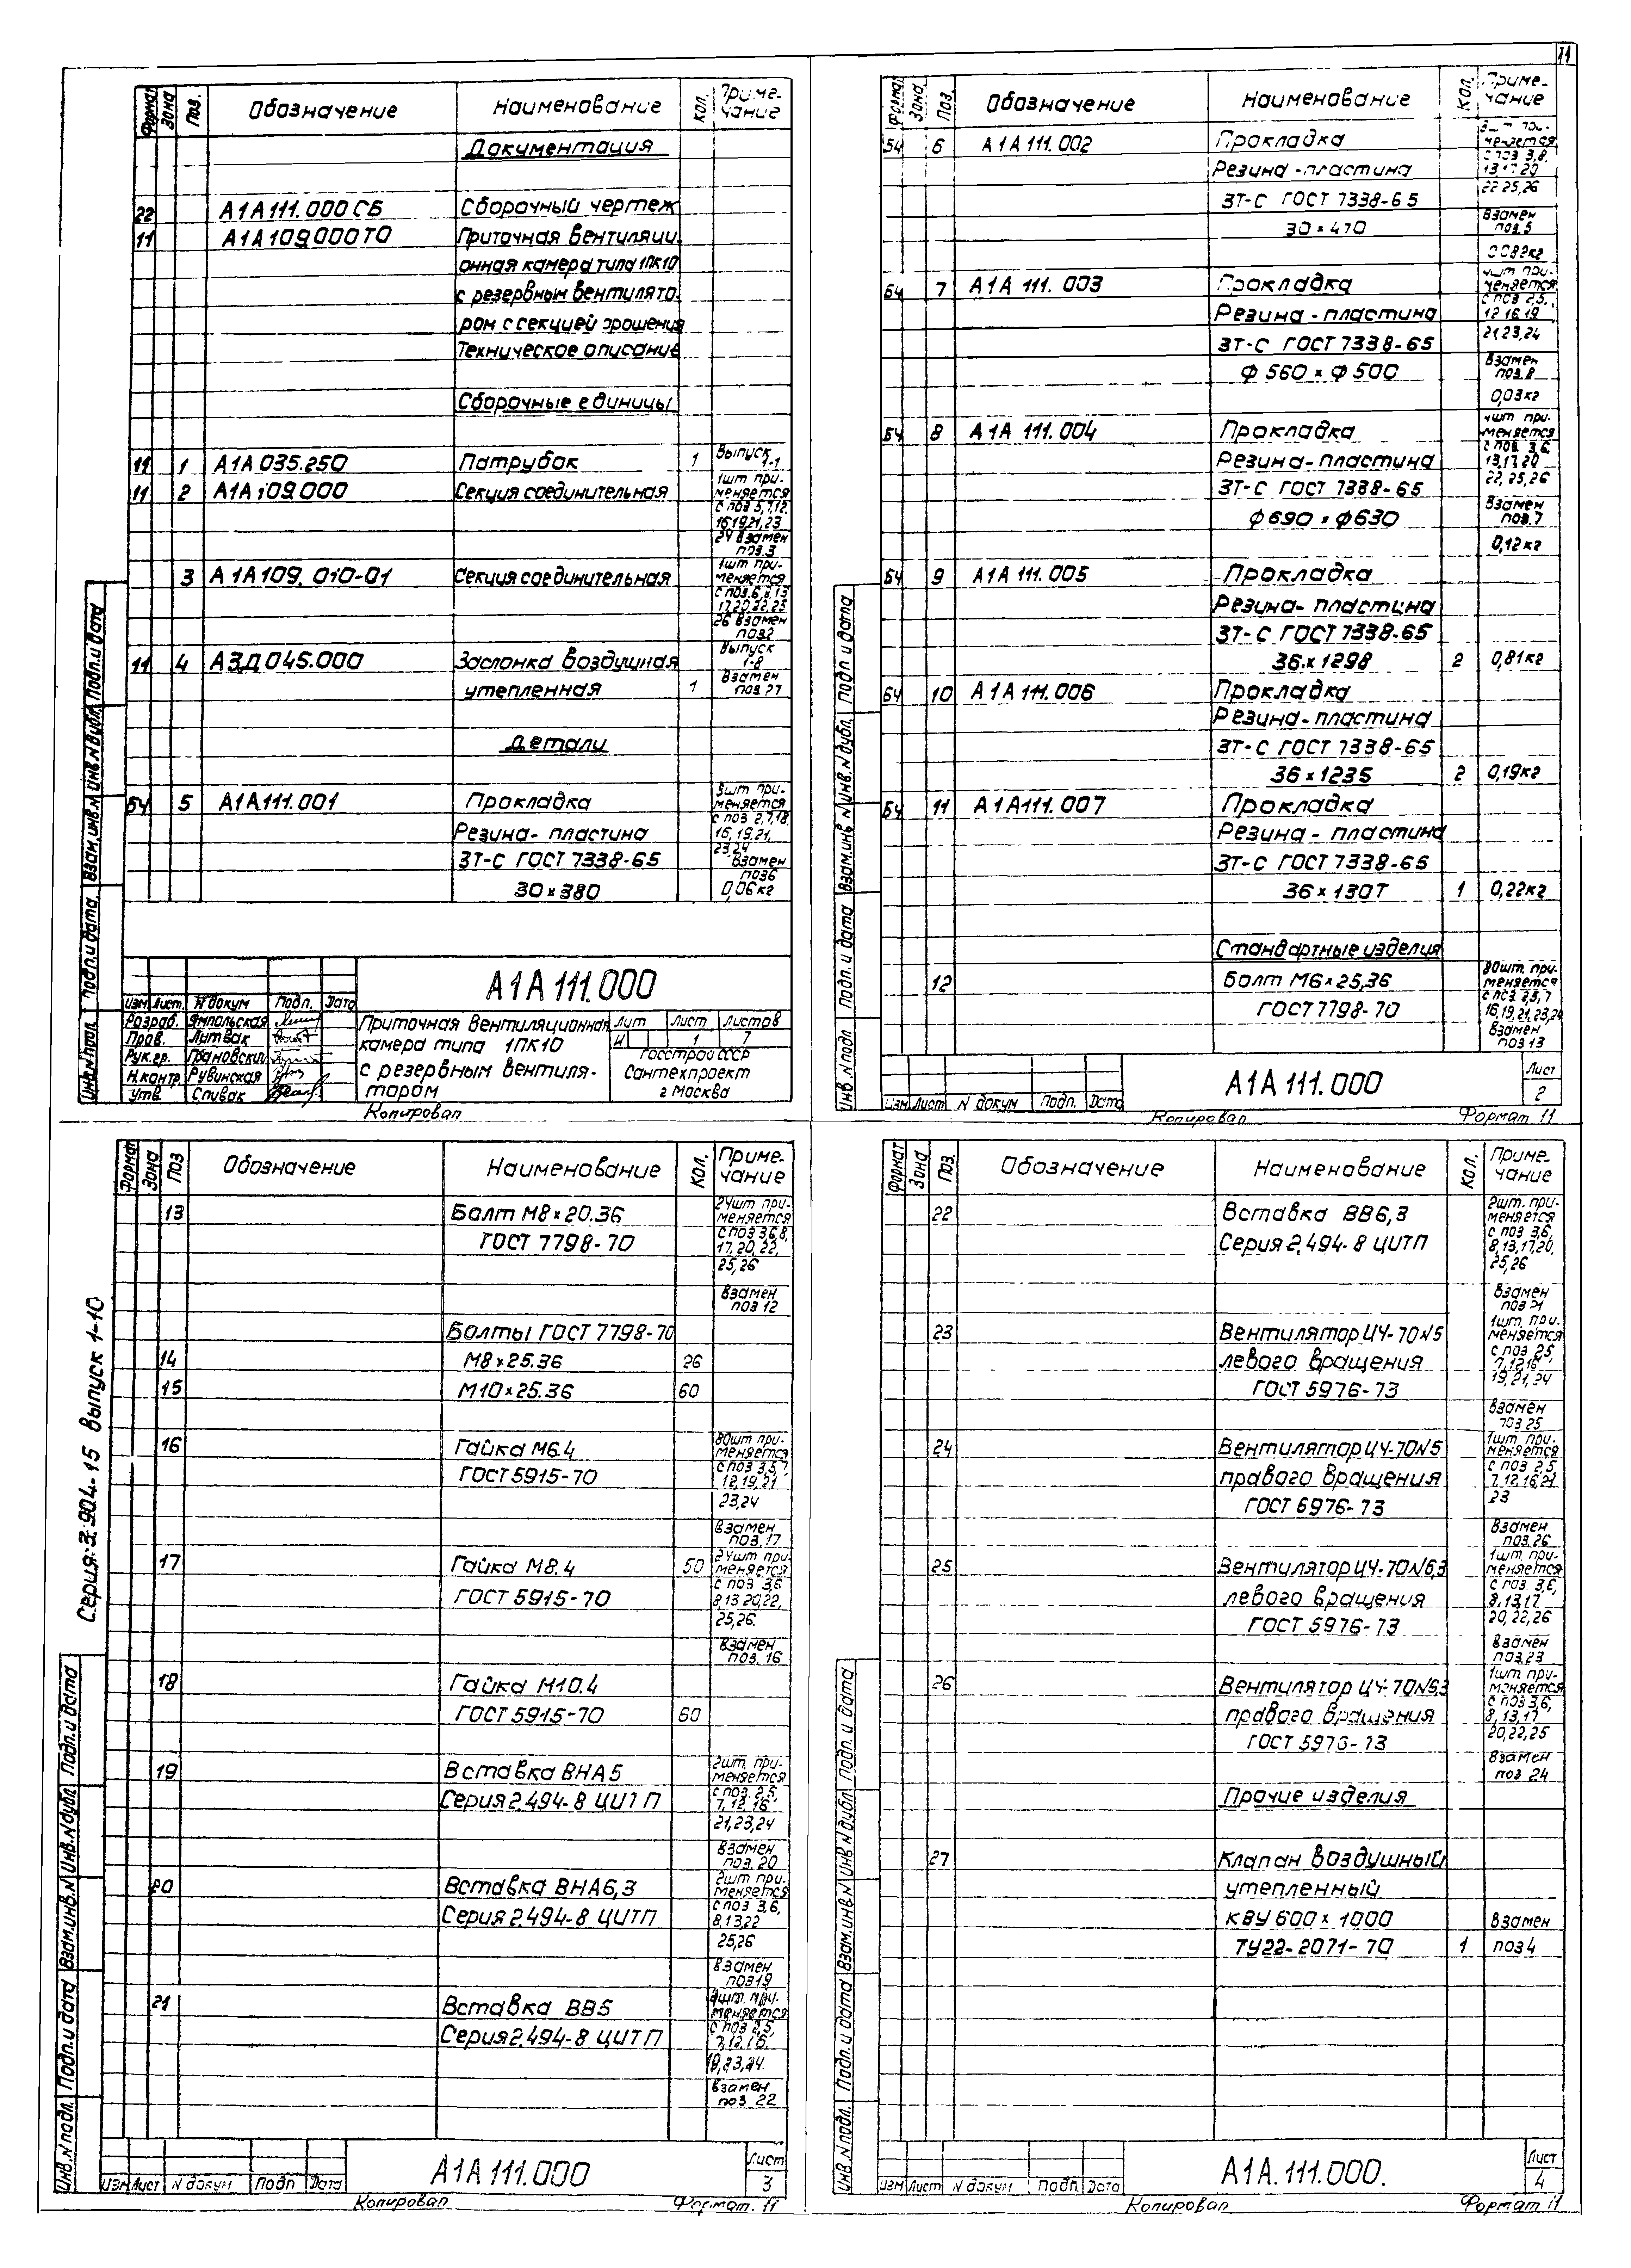 11
Формат Зона Поз. Обозначение Наименование Кол. Приме-
чание
Документация
22 А1А111.000 СБ Сборочный чертеж
11 А1А109.000ТО Приточная вентиляци-
онная камера типа 1ПК10
с резервным вентилято-
ром с секцией орошения
Техническое описание
Сборочные единицы
11 1 А1А035.250 Патрубок 1 Выпуск
1-1
11 2 А1А109.000 Секция соединительная 1шт при-
меняется
с поз 5,7,12,
16,19,21,23
24 взамен
поз.3
3 А1А109.010-01 Секция соединительная 1шт при-
меняется
с поз.6,8,13
17,20,22,25
26 взамен
поз2
11 4 А3Д045.000 Заслонка воздушная Выпуск
1-8
утепленная 1 Взамен
поз.27
Детали
БЧ 5 А1А111.001 Прокладка 3шт при-
меняется
Резина-пластина с поз 2,7,18,
16,19,21,
3Т-С ГОСТ 7338-65 23,24
Взамен
поз6
30×380 0,06кг
Изм Лист N докум Подп. Дата
А1А111.000
Разраб. Ямпольская
Пров. Литвак
Рук.гр. Грановский
Н.контр. Рувинская
Утв. Спивак
Приточная вентиляционная
камера типа 1ПК10
с резервным вентиля-
тором
Лит Лист Листов
И 1 7
Госстрой СССР
Сантехпроект
г Москва
Копировал
Инв.N подл. Подп.и дата Взам.инв.N Инв.N дубл. Подп.и дата
Формат Зона Поз. Обозначение Наименование Кол. Приме-
чание
54 6 А1А111.002 Прокладка 3шт при-
меняется
Резина-пластина с поз 3,8,
13 17 20
3Т-С ГОСТ 7338-65 22 25,26
30×410 Взамен
поз.5
0 082кг
БЧ 7 А1А 111.003 Прокладка 4шт при-
меняется
Резина-пластина с поз 2,5,
12 16 19
3Т-С ГОСТ 7338-65 21,23,24
Ф 560 × Ф 500 Взамен
поз.8
0,03кг
БЧ 8 А1А 111.004 Прокладка 4шт при-
меняется
Резина-пластина с поз. 3,6,
13,17,20
3Т-С ГОСТ 7338-65 22,25,26
Ф690 × Ф630 Взамен
поз.7
0,12кг
БЧ 9 А1А 111.005 Прокладка
Резина-пластина
3Т-С ГОСТ 7338-65
36×1298 2 0,81кг
БЧ 10 А1А 111.006 Прокладка
Резина-пластина
3Т-С ГОСТ 7338-65
36×1235 2 0,19кг
БЧ 11 А1А111.007 Прокладка
Резина-пластина
3Т-С ГОСТ 7338-65
36×1307 1 0,22кг
Стандартные изделия
12 Болт М6×25,36 80шт. при-
меняется
ГОСТ 7798-70 с поз 2,5,7
16,19,21,23,24
Взамен
поз 13
Изм Лист N докум Подп. Дата А1А 111.000 Лист
2
Копировал Формат 11
Инв.N подл Подп. и дата Взам.инв N Инв.N дубл. Подп и дата
Формат Зона Поз Обозначение Наименование Кол. Приме-
чание
13 Болт М8×20.36 24шт при-
меняется
ГОСТ 7798-70 с поз 3,6,8,
17,20,22,
25,26
взамен
поз 12
Болты ГОСТ 7798-70
14 М8×25.36 26
15 М10×25.36 60
16 Гайка М6.4 80шт при-
меняется
ГОСТ5915-70 с поз 3,5,7
12,19,21
23,24
взамен
поз.17
17 Гайка М8.4 50 24шт при-
меняется
ГОСТ 5915-70 с поз 3,6
8,13 20,22,
25,26.
взамен
поз. 16
18 Гайка М10.4
ГОСТ5915-70 60
19 Вставка ВНА5 2шт. при-
меняется
Серия2.494-8 ЦИТП с поз 2,5,
7,12,16
21,23,24
взамен
поз. 20
20 Вставка ВНА6,3 2шт при-
меняется
Серия 2.494-8 ЦИТП с поз 3,6,
8,13,22
25,26
взамен
поз19
21 Вставка ВВ5 2шт. при-
меняется
Серия2.494-8 ЦИТП с поз 2,5,
7,12,16,
19,23,24.
взамен
поз 22
Изм Лист N докум Подп Дата А1А 111.000 Лист
3
Копировал Формат. 11
Серия:3.904-15 Выпуск 1-10
Инв.N подл. Подп.и дата Взам.инв.N Инв.N дубл Подп.и дата
Формат Зона Поз. Обозначение Наименование Кол. Приме-
чание
22 Вставка ВВ6,3 2шт. при-
меняется
Серия 2.494-8 ЦИТП с поз 3,6,
8,13,17,20,
25,26
Взамен
поз 21
23 Вентилятор ЦЧ-70N5 1шт. при-
меняется
левого вращения с поз 2,5
7,12 16
ГОСТ 5976-73 19,21,24
взамен
поз 25
24 Вентилятор ЦЧ-70N5 1шт. при-
меняется
правого вращения с поз 2,5
7,12,16,21
ГОСТ 6976-73 23
Взамен
поз.26
25 Вентилятор ЦЧ-70N6,3 1шт при-
меняется
левого вращения с поз. 3,6,
8,13,17
ГОСТ 5976-73 20,22,26
взамен
поз.23
26 Вентилятор ЦЧ-70N6,3 1шт. при-
меняется
правого вращения с поз 3,6,
8,13,17
ГОСТ 5976-73 20,22,25
взамен
поз 24
Прочие изделия
27 Клапан воздушный
утепленный
КВУ 600×1000 взамен
ТУ22-2071-70 1 поз4
Изм Лист N докум Подп. Дата А1А.111.000. Лист
4
Копировал Формат 11
Инв.N подл. Подп. и дата Взам.инв.N Инв.N дубл Подп. и дата